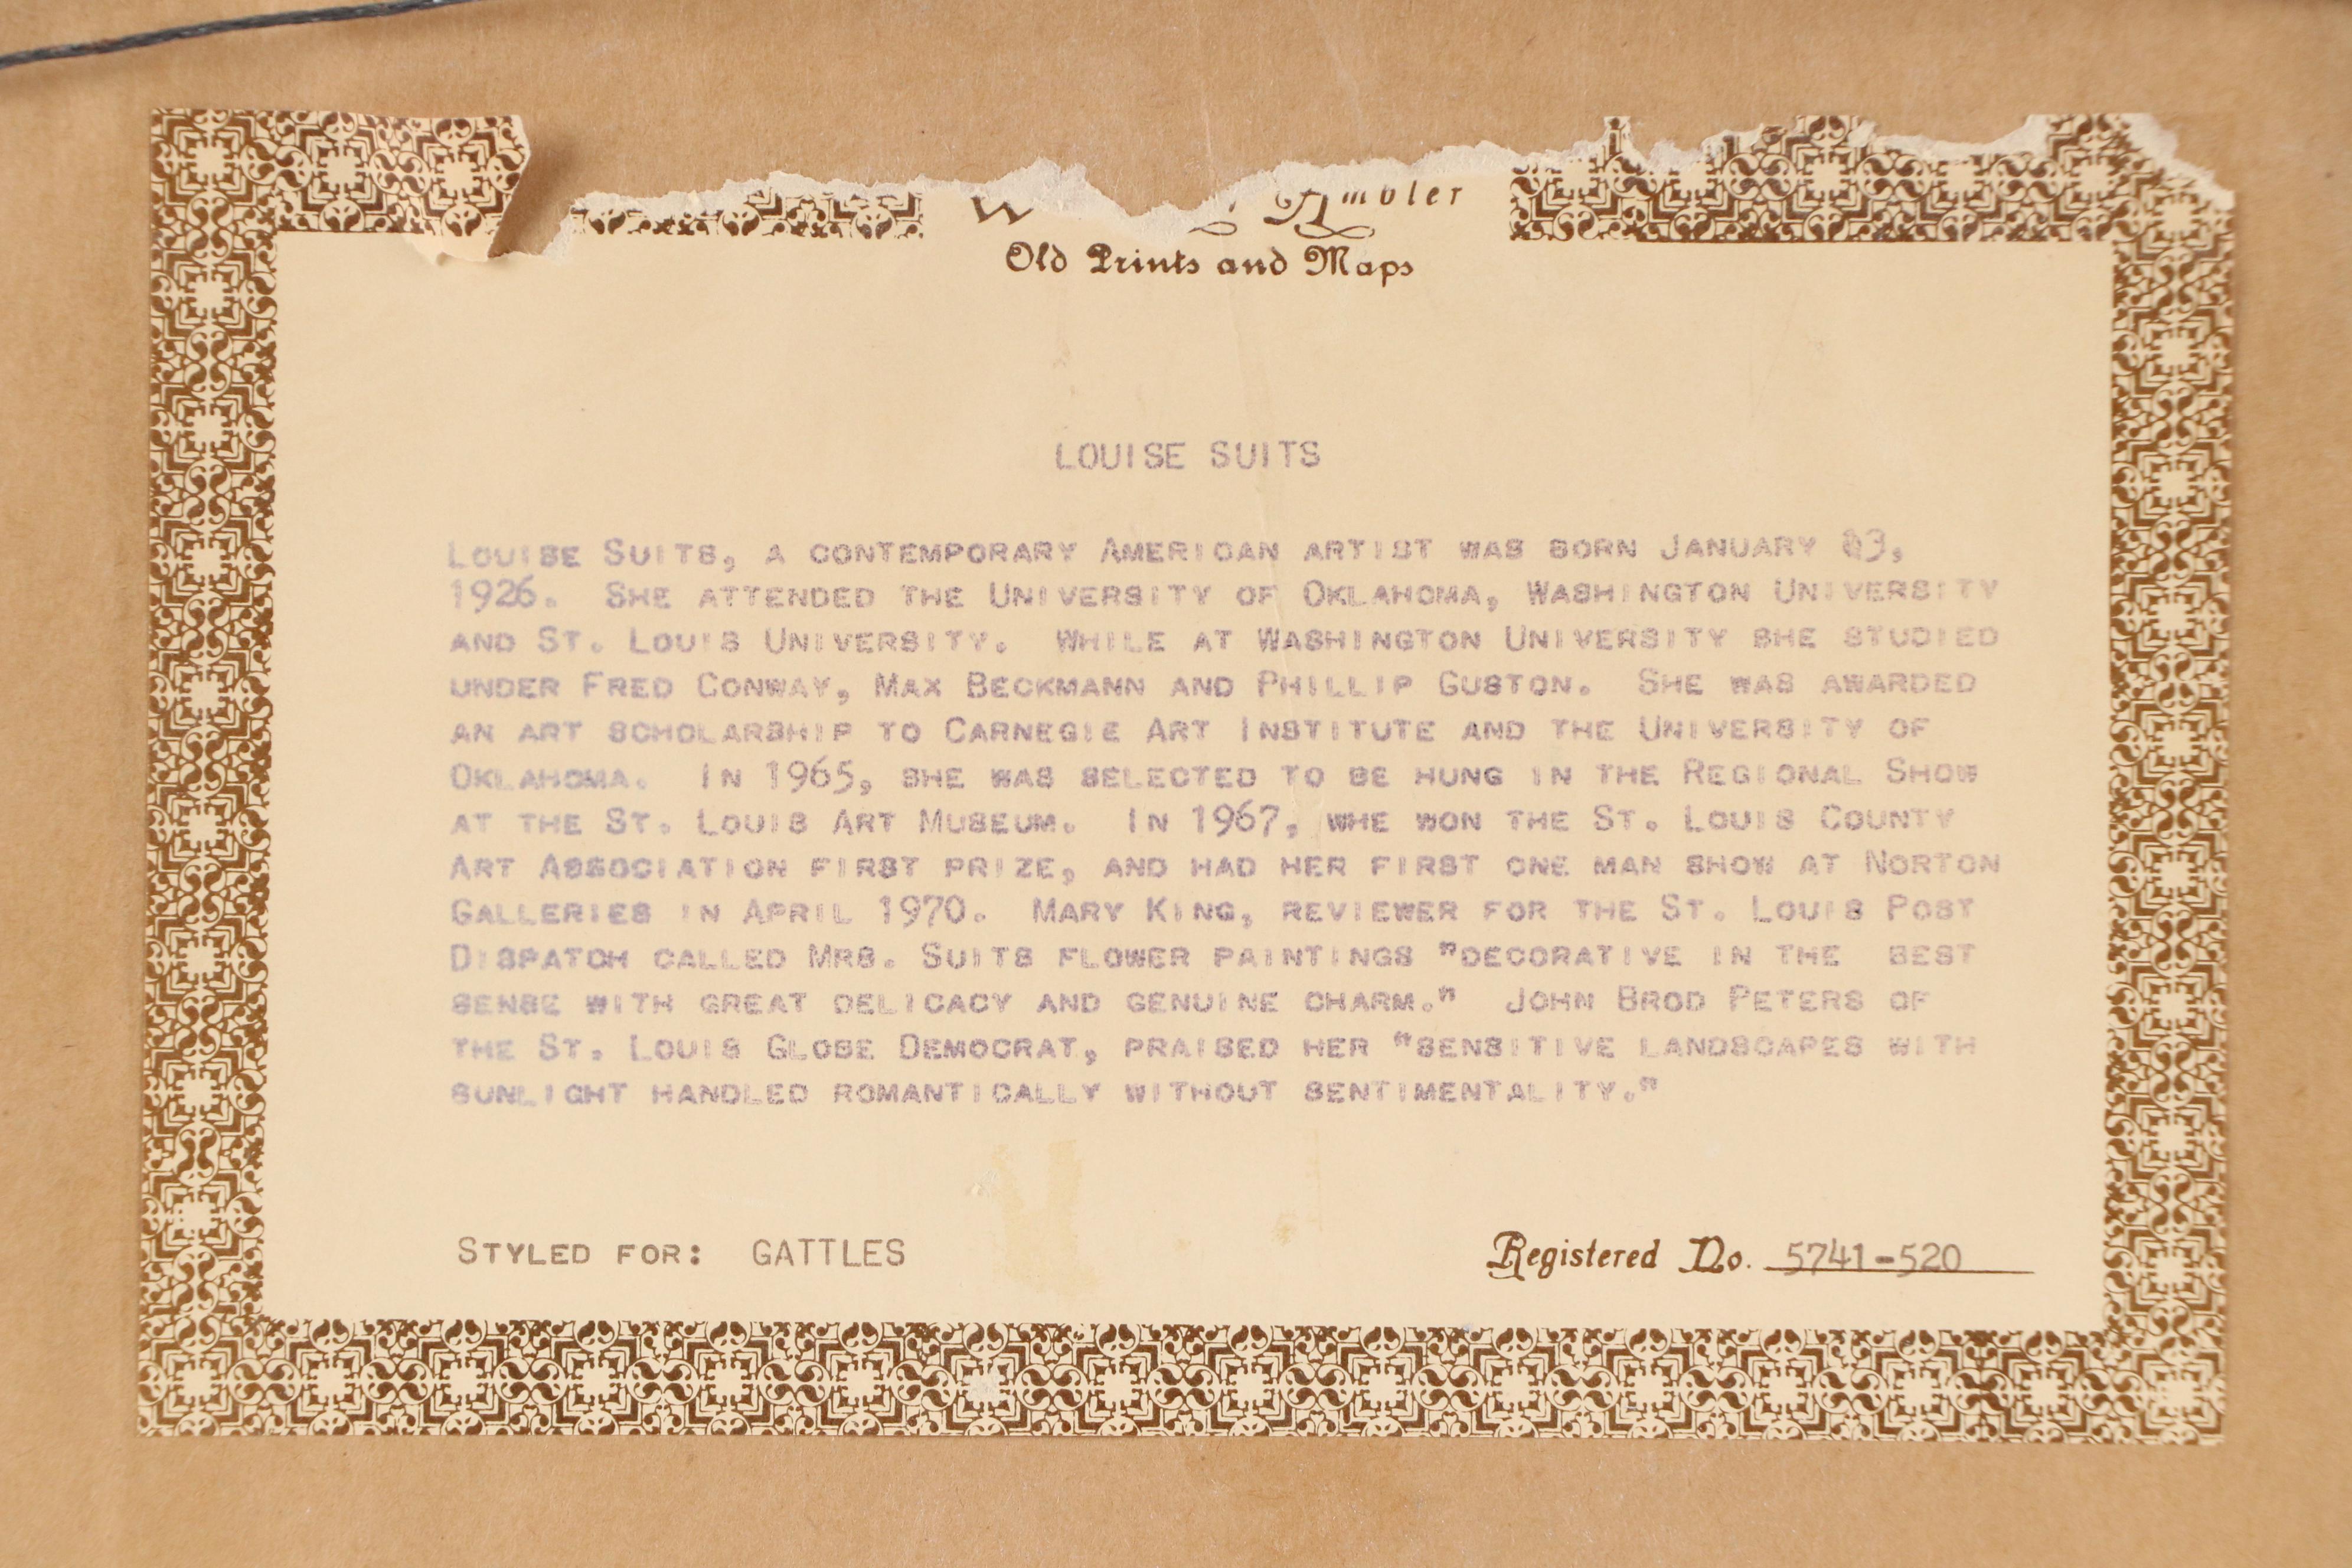 Ambler
Old Prints and Maps
LOUISE SUITS
LOUISE SUITS, A CONTEMPORARY AMERICAN ARTIST WAS BORN JANUARY
1926. SHE ATTENDED THE UNIVERSITY OF OKLAHOMA, WASHINGTON UNIVERSITY
AND ST. LOUIS UNIVERSITY. WHILE AT WASHINGTON UNIVERSITY SHE STUDIED
UNDER FRED CONWAY, MAX BECKMANN AND PHILLIP GUSTON. SHE WAS AWARDED
AN ART SCHOLARSHIP TO CARNEGIE ART INSTITUTE AND THE UNIVERSITY OF
OKLAHOMA. IN 1965, SHE WAS SELECTED TO BE HUNG IN THE REGIONAL SHOW
AT THE ST. LOUIS ART MUSEUM. IN 1967, WHE WON THE ST. LOUIS COUNTY
ART ASSOCIATION FIRST PRIZE, AND HAD HER FIRST ONE MAN SHOW AT NORTON
GALLERIES IN APRIL 1970. MARY KING, REVIEWER FOR THE ST. LOUIS POST
DISPATCH CALLED MRS. SUITS FLOWER PAINTINGS "DECORATIVE IN THE BEST
SENSE WITH GREAT DELICACY AND GENUINE CHARM." JOHN BROD PETERS OF
THE ST. LOUIS GLOBE DEMOCRAT, PRAISED HER "SENSITIVE LANDSCAPES WITH
SUNLIGHT HANDLED ROMANTICALLY WITHOUT SENTIMENTALITY."
STYLED FOR: GATTLES
Registered No. 5741-520